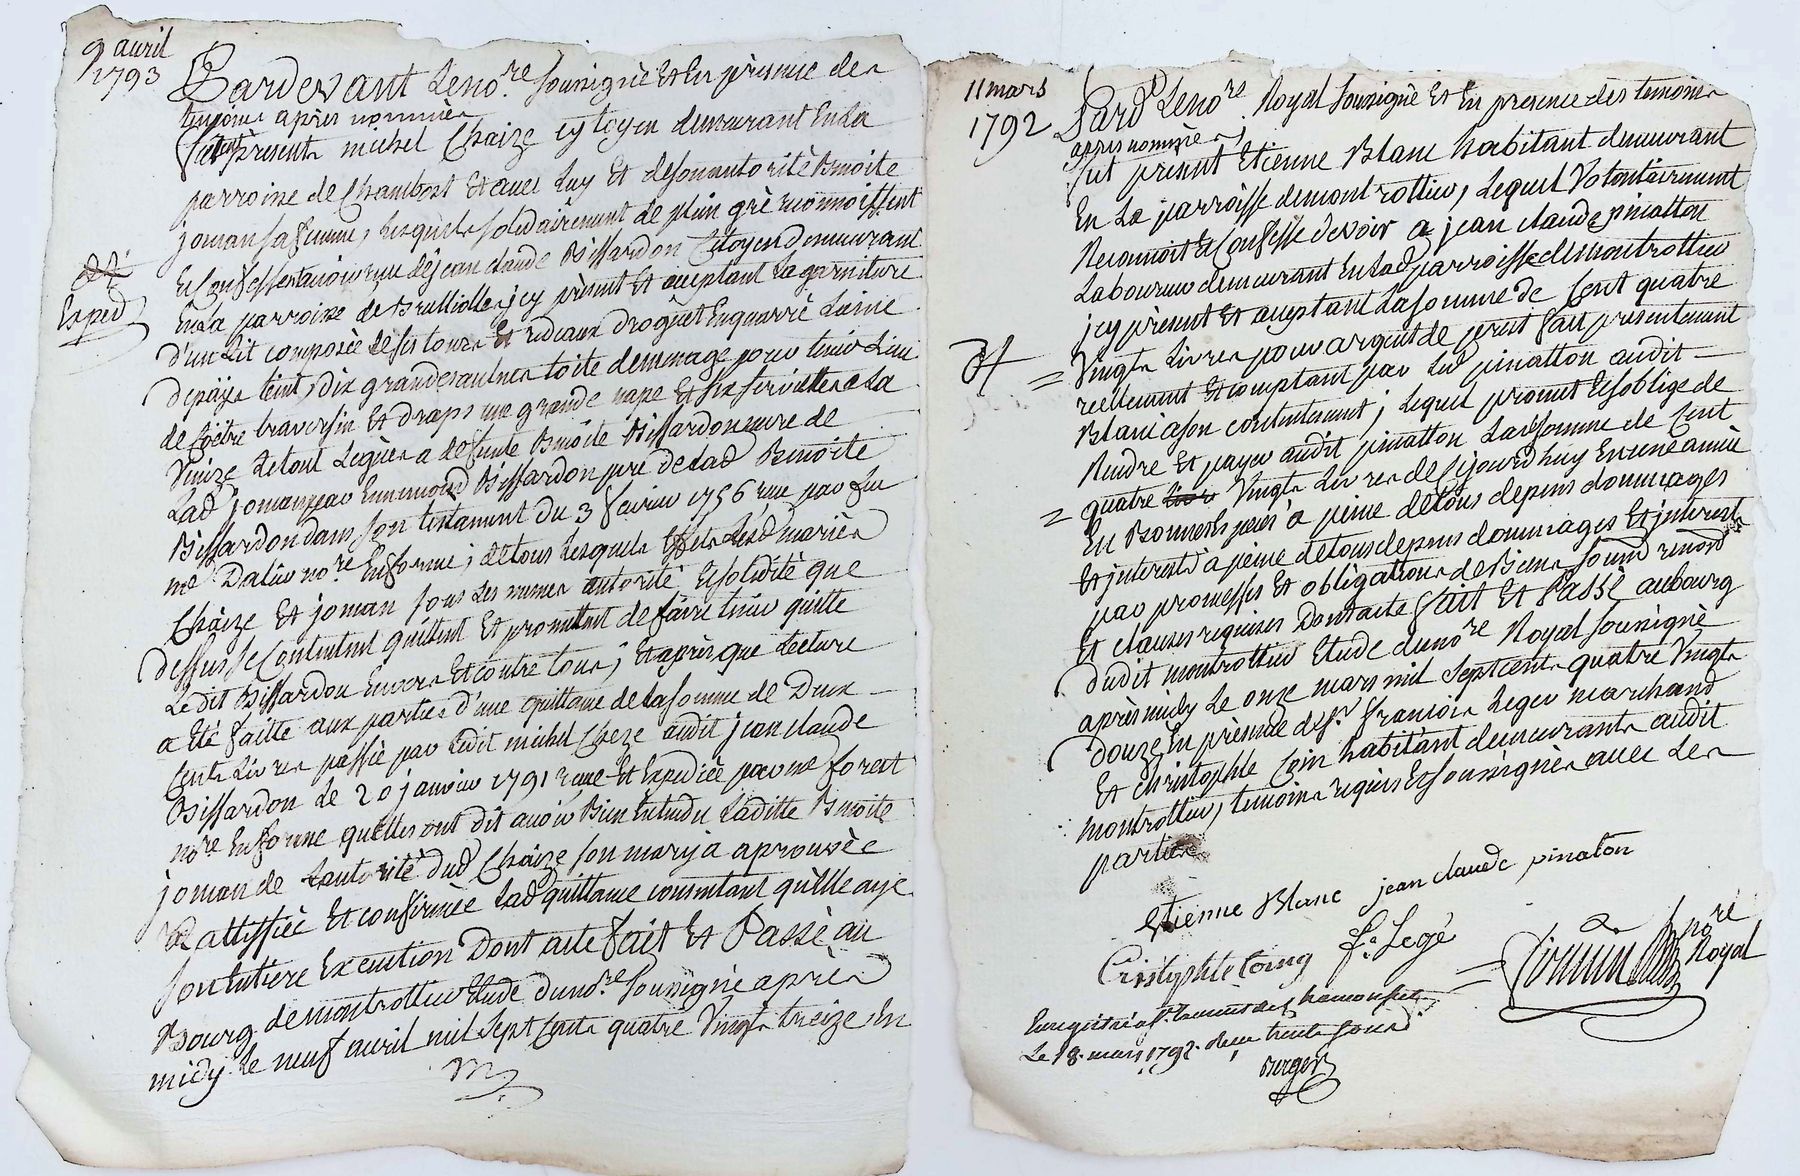 9 avril
1793
Pardevant Le no.re soussigné Et En présence des
temoins après nommés
furent présents michel Chaize cytoyen demeurant En La
parroisse de Chambost Et avec Luy Et de son autorité Benoite
joman sa femme, Lesquels solidairement de plein gré reconnoissent
Et Confessent avoir reçu de jean claude Bissardon Citoyen demeurant
En La parroisse de Brulliolles jcy présent Et acceptant La garniture
d'un Lit composée de six tours Et rideaux droguet En quarré Laine
de païs teint, dix grandes aulnes toile de menage pour tenir Lieu
de Coëtre traversin Et draps une grande nape Et six serviettes a La
Venize Le tout Légué a defunte Benoite Bissardon mere de
Lad joman par Ennemond Bissardon pere de Lad Benoite
Bissardon dans son testament du 3 fevrier 1756 reçu par feu
me Dalin no.re En forme; de tous Lesquels Effets Lesd mariés
Chaize Et joman sous Les memes autorité Et solidité que
dessus se Contentent quittent Et promettent de faire tenir quitte
Ledit Bissardon Envers Et contre tous; Et après que Lecture
a Eté faitte aux parties d'une quittance de La somme de Deux
Cents Livres passée par Ledit michel Cheze audit jean claude
Bissardon Le 20 janvier 1791 reçue Et Expediée par me forest
no.re En forme qu'elles ont dit avoir Bien Entendu Laditte Benoite
joman de Lautorité dud Chaize son mary a aprouvée
Rattiffiée Et confirmée Lad quittance consentant qu'elle aye
son Entiere Execution Dont acte fait Et Passé au
Bourg de montrottier Etude du no.re soussigné après
midy Le neuf avril mil sept Cents quatre Vingts treize En
Exped
11 mars
1792
Pard Le no.re Royal soussigné Et En presence des temoins
après nommés
fut présent Etienne Blanc habitant demeurant
En La parroisse de montrottier, Lequel Volontairement
Reconnoit Et Confesse devoir a jean claude pinatton
Laboureur demeurant En Lad parroisse de montrottier
jcy présent Et acceptant La somme de Cent quatre
Vingts Livres pour argent de prest fait présentement
reellement Et comptant par Led pinatton audit
Blanc a son contentement; Lequel promet Et s'oblige de
Rendre Et payer audit pinatton Lad somme de Cent
quatre Vingts Livres de Cejourd'huy En une année
En Bonnes Espèces a peine de tous depens dommages
Et interests a peine de tous depens dommages Et interests
par promesses Et obligations de Biens soumd renond
Et clauses requises Dont acte fait Et Passé au bourg
dudit montrottier Etude du no.re Royal soussigné
après midy Le onze mars mil sept cents quatre Vingts
douze En présence de s.r francois Leger marchand
Et Christophle Coin habitant demeurants audit
montrottier, temoins requis Et soussignés avec Les
parties
Etienne Blanc jean claude pinaton
Cristophle Coing f. Legé
no.re
Royal
Le 18 mars 1792
Berger